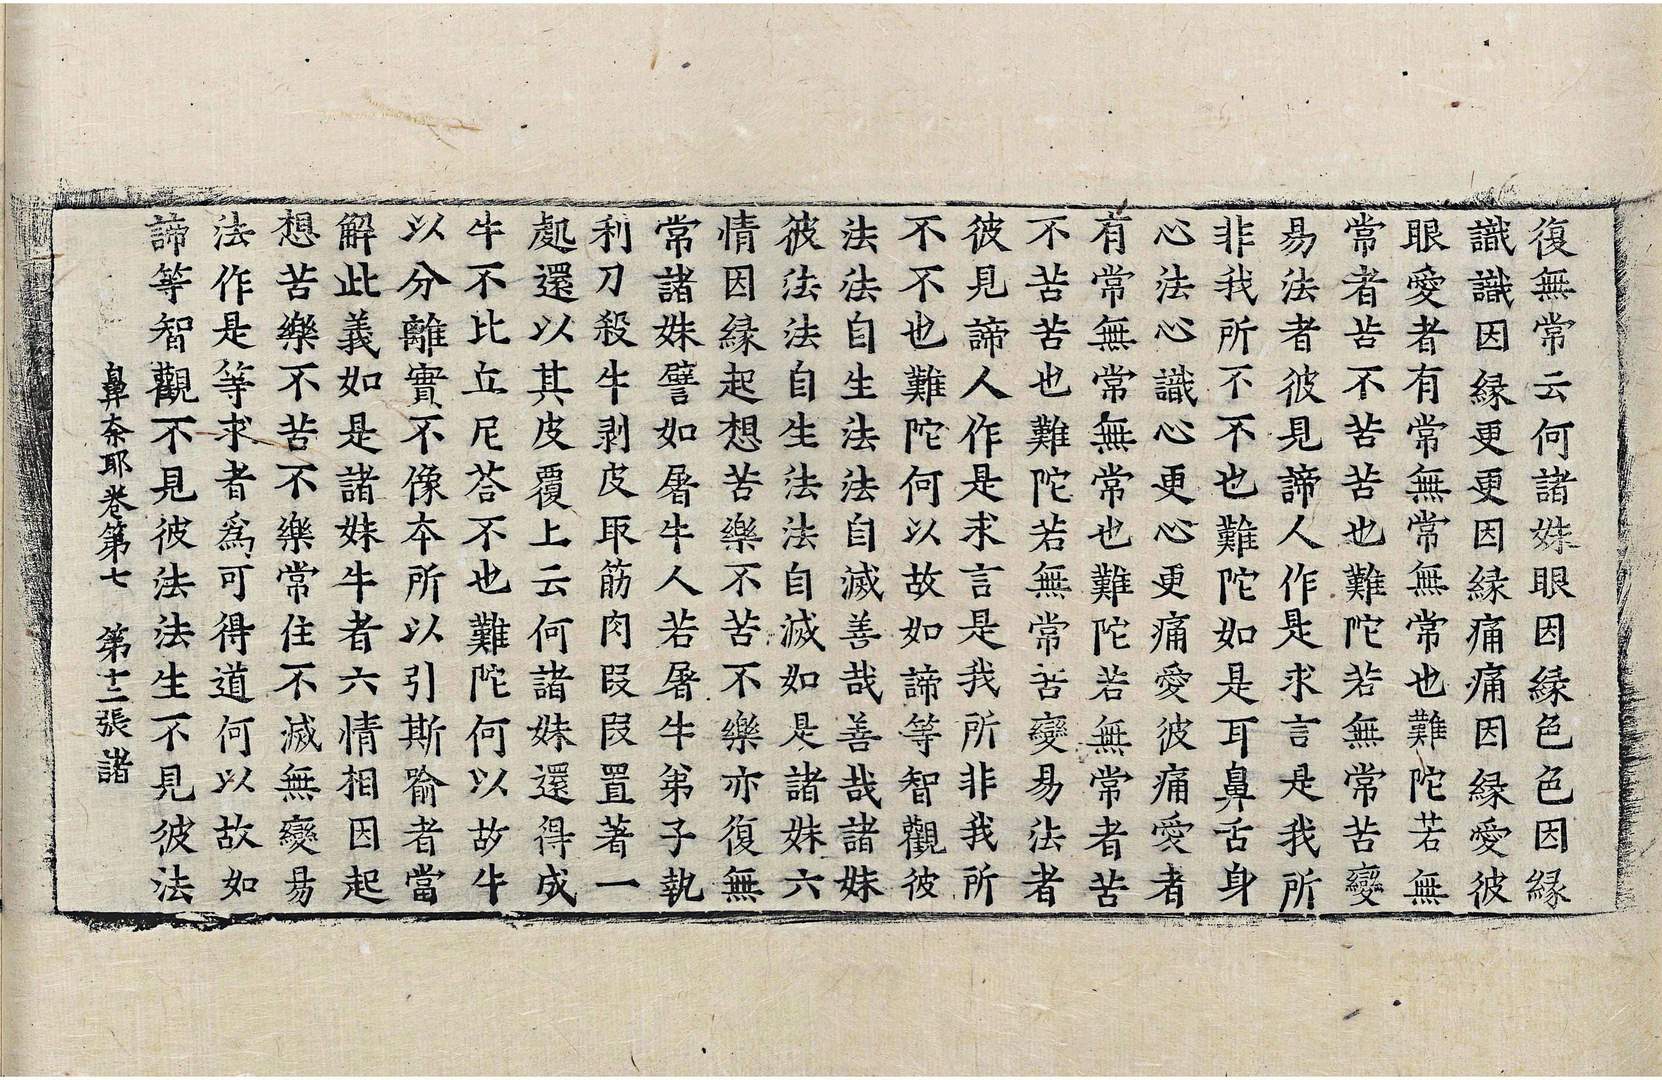 復無常云何諸姝眼因縁色色因縁
識識因縁更更因縁痛痛因縁愛彼
眼愛者有常無常無常也難陀若無
常者苦不苦苦也難陀若無常苦變
易法者彼見諦人作是求言是我所
非我所不不也難陀如是耳鼻舌身
心法心識心更心更痛愛彼痛愛者
有常無常無常也難陀若無常者苦
不苦苦也難陀若無常苦變易法者
彼見諦人作是求言是我所非我所
不不也難陀何以故如諦等智觀彼
法法自生法法自滅善哉善哉諸妹
彼法法自生法法自滅如是諸妹六
情因縁起想苦樂不苦不樂亦復無
常諸姝譬如屠牛人若屠牛弟子執
利刀殺牛剥皮取筋肉段段置著一
處還以其皮覆上云何諸妹還得成
牛不比丘尼荅不也難陀何以故牛
以分離實不像本所以引斯喻者當
解此義如是諸妹牛者六情相因起
想苦樂不苦不樂常住不滅無變易
法作是等求者爲可得道何以故如
諦等智觀不見彼法法生不見彼法
鼻奈耶卷第七 第十二張 諸